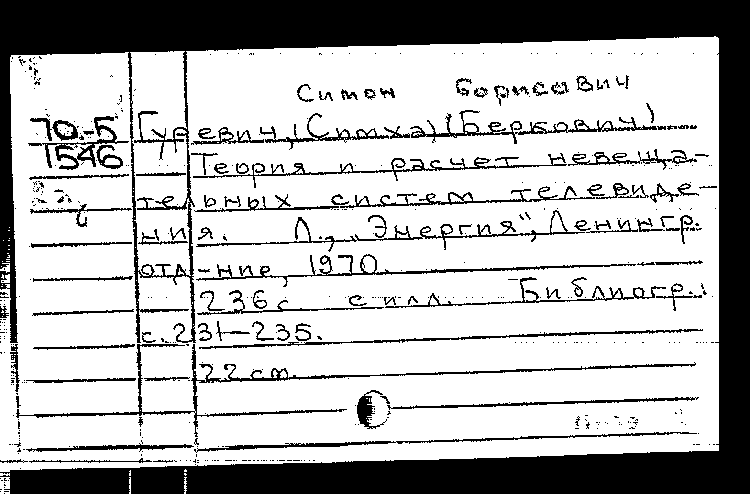 Симон Борисович
70-5 Гуревич, (Симха) (Беркович)
1546 Теория и расчет невеща-
тельных систем телевиде-
ния. Л., „Энергия", Ленингр.
отд-ние, 1970.
236с с илл. Библиогр.:
с. 231–235.
22 см.